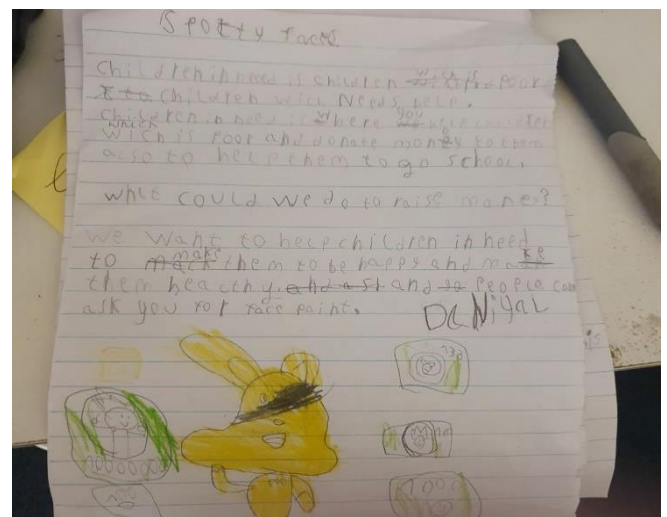 Spotty faces
Children in need is children which is Poor
to children with Needs help.
Children in need is where you children
which
wich is Poor and donate money to them
also to help them to go school.
What could we do to raise money?
We want to help children in need
to make them to be happy and make
them healthy and People can
ask you for face paint.
Daniyal